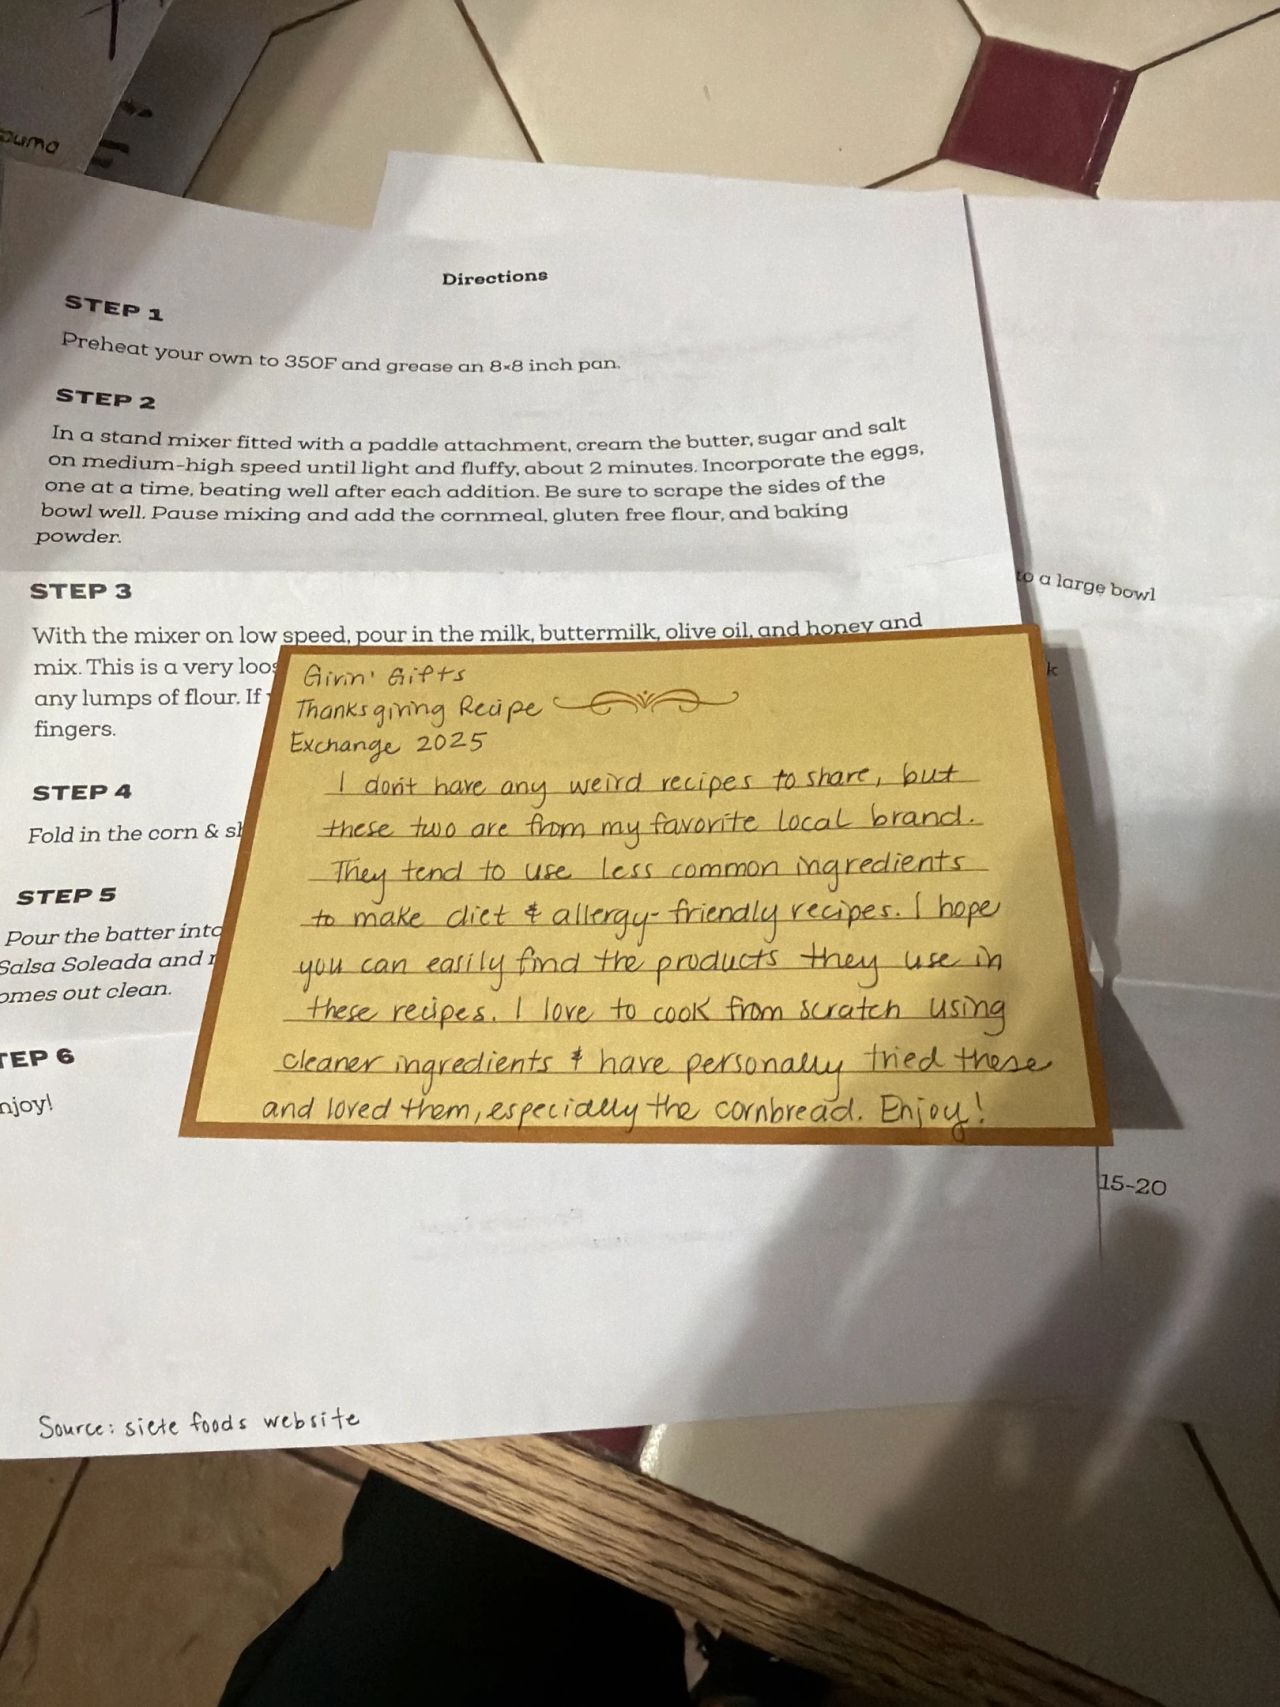 ouma
Directions
STEP 1
Preheat your own to 350F and grease an 8×8 inch pan.
STEP 2
In a stand mixer fitted with a paddle attachment, cream the butter, sugar and salt
on medium-high speed until light and fluffy, about 2 minutes. Incorporate the eggs,
one at a time, beating well after each addition. Be sure to scrape the sides of the
bowl well. Pause mixing and add the cornmeal, gluten free flour, and baking
powder.
STEP 3
With the mixer on low speed, pour in the milk, buttermilk, olive oil, and honey and
mix. This is a very loos
any lumps of flour. If
fingers.
STEP 4
Fold in the corn & sh
STEP 5
Pour the batter into
Salsa Soleada and r
omes out clean.
TEP 6
njoy!
Source: siete foods website
Givin' Gifts
Thanksgiving Recipe
Exchange 2025
I don't have any weird recipes to share, but
these two are from my favorite local brand.
They tend to use less common ingredients
to make diet & allergy-friendly recipes. I hope
you can easily find the products they use in
these recipes. I love to cook from scratch using
cleaner ingredients & have personally tried these
and loved them, especially the cornbread. Enjoy!
to a large bowl
k
15-20